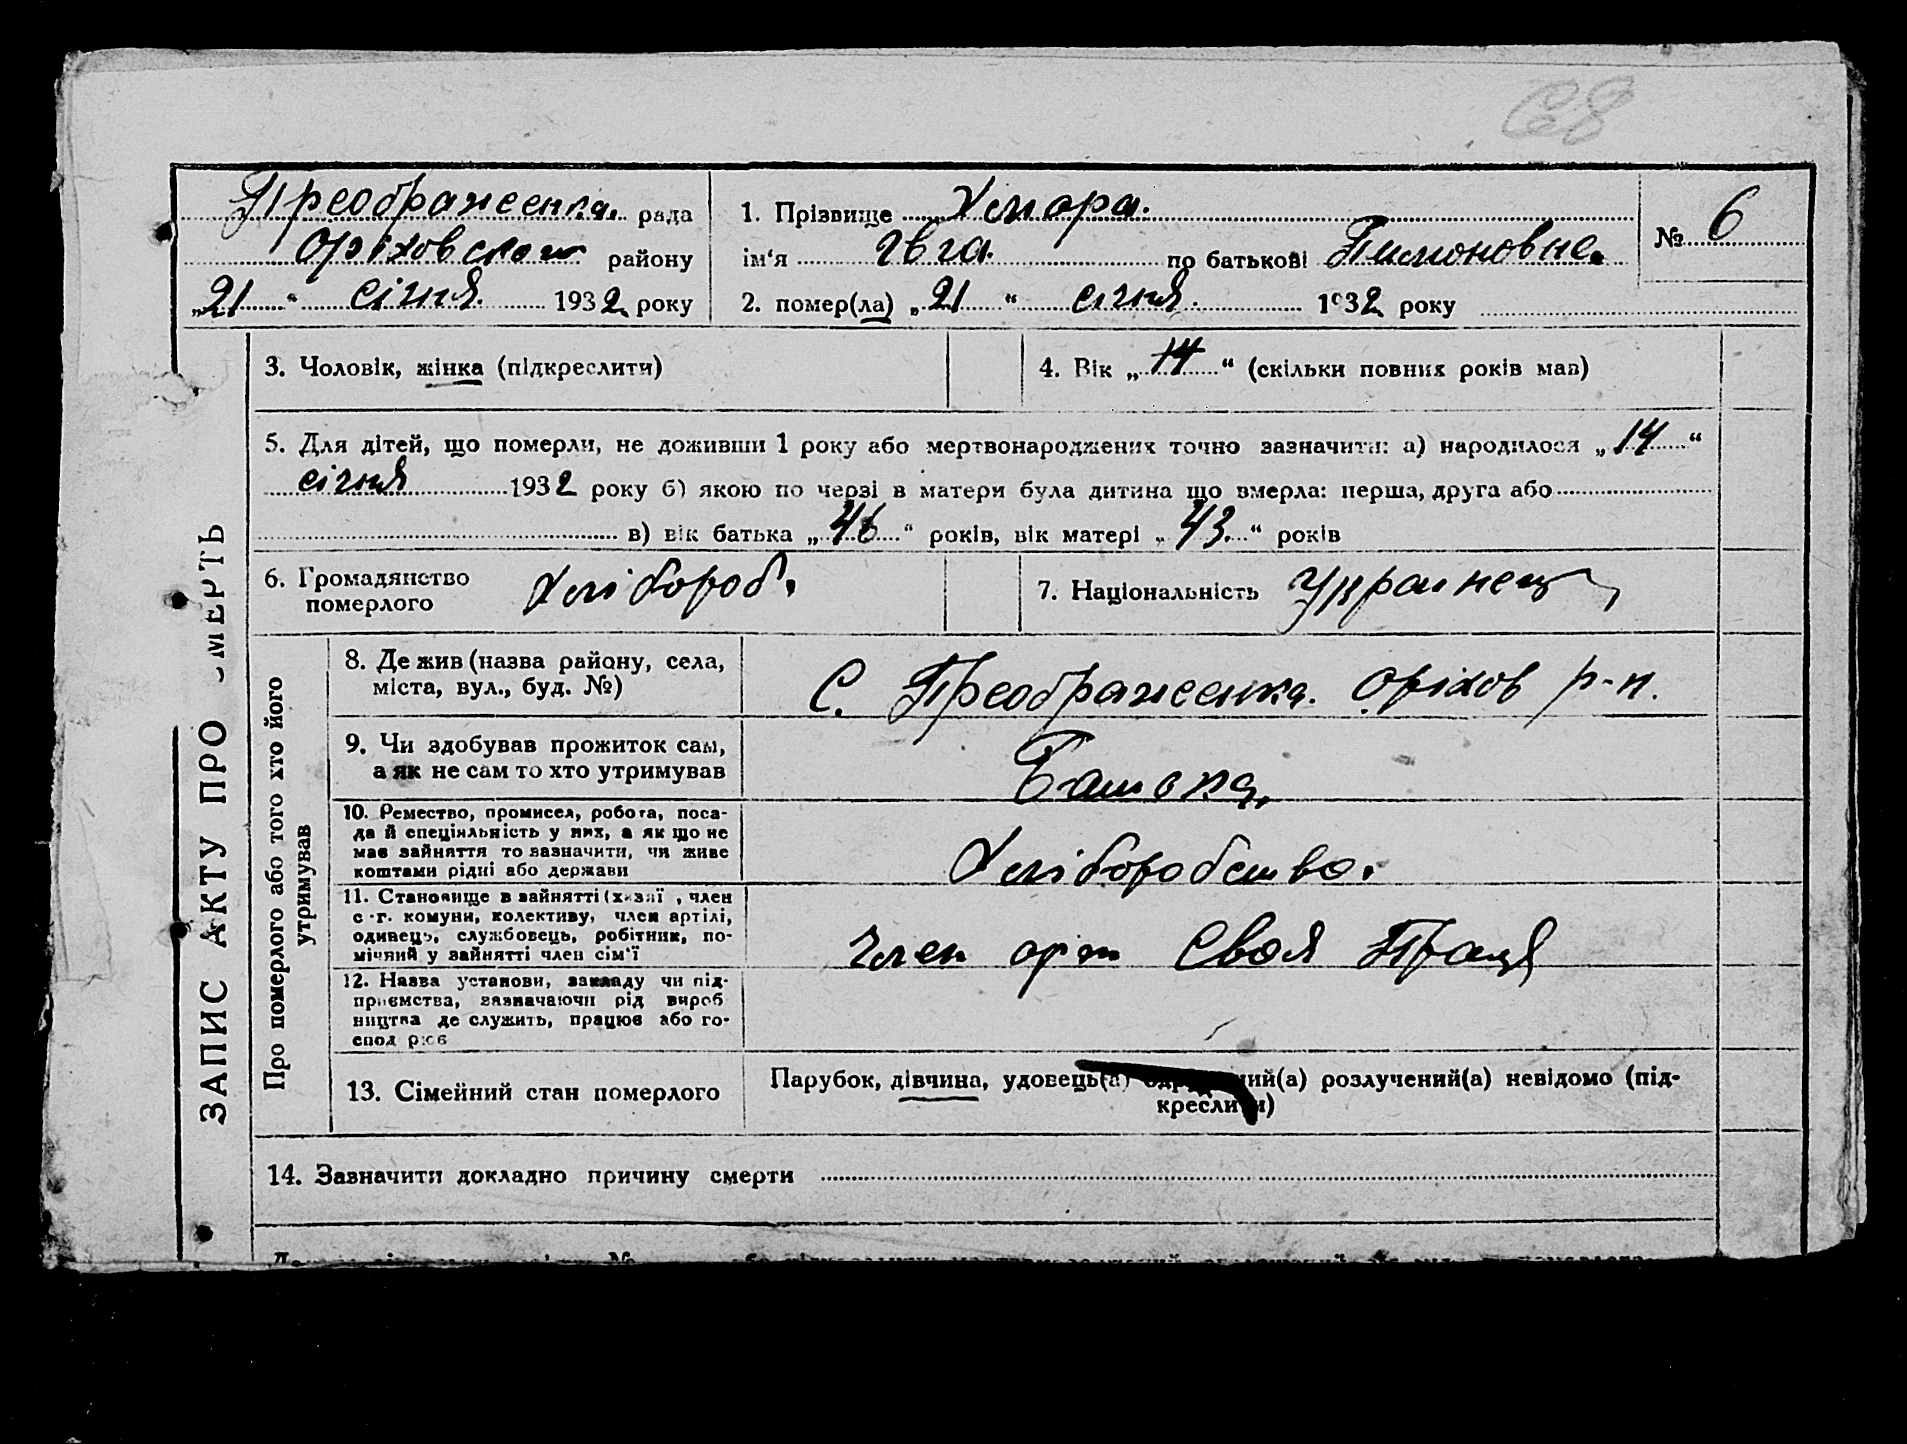 68
Преображенка. рада
Оріховского району
„21“ січня. 1932 року
1. Прізвище Хмара.
ім'я Івга. по батькові Тимоновне.
2. помер(ла) „21“ січня. 1932 року
№ 6
ЗАПИС АКТУ ПРО СМЕРТЬ
3. Чоловік, жінка (підкреслити)
4. Вік „14“ (скільки повних років мав)
5. Для дітей, що померли, не доживши 1 року або мертвонароджених точно зазначити: а) народилося „14“
січня 1932 року б) якою по черзі в матери була дитина що вмерла: перша, друга або
в) вік батька „46“ років, вік матері „43.“ років
6. Громадянство
померлого
Хлібороб.
7. Національність Украинец
Про померлого або того хто його
утримував
8. Де жив (назва району, села,
міста, вул., буд. №)
С. Преображенка. Оріхов р-н.
9. Чи здобував прожиток сам,
а як не сам то хто утримував
Батька.
10. Ремество, промисел, робота, поса-
да й спеціяльність у них, а як що не
має зайняття то зазначити, чи живе
коштами рідні або держави
Хліборобство.
11. Становище в зайнятті (хазяї, член
с.-г. комуни, колективу, член артілі,
одинець, службовець, робітник, по-
мічний у зайнятті член сім'ї
Член арт Своя Праця
12. Назва установи, закладу чи під-
приємства, зазначаючи рід вироб
ництва де служить, працює або го-
спод рює
13. Сімейний стан померлого
Парубок, дівчина, удовець(а) одружений(а) розлучений(а) невідомо (під-
креслити)
14. Зазначити докладно причину смерти